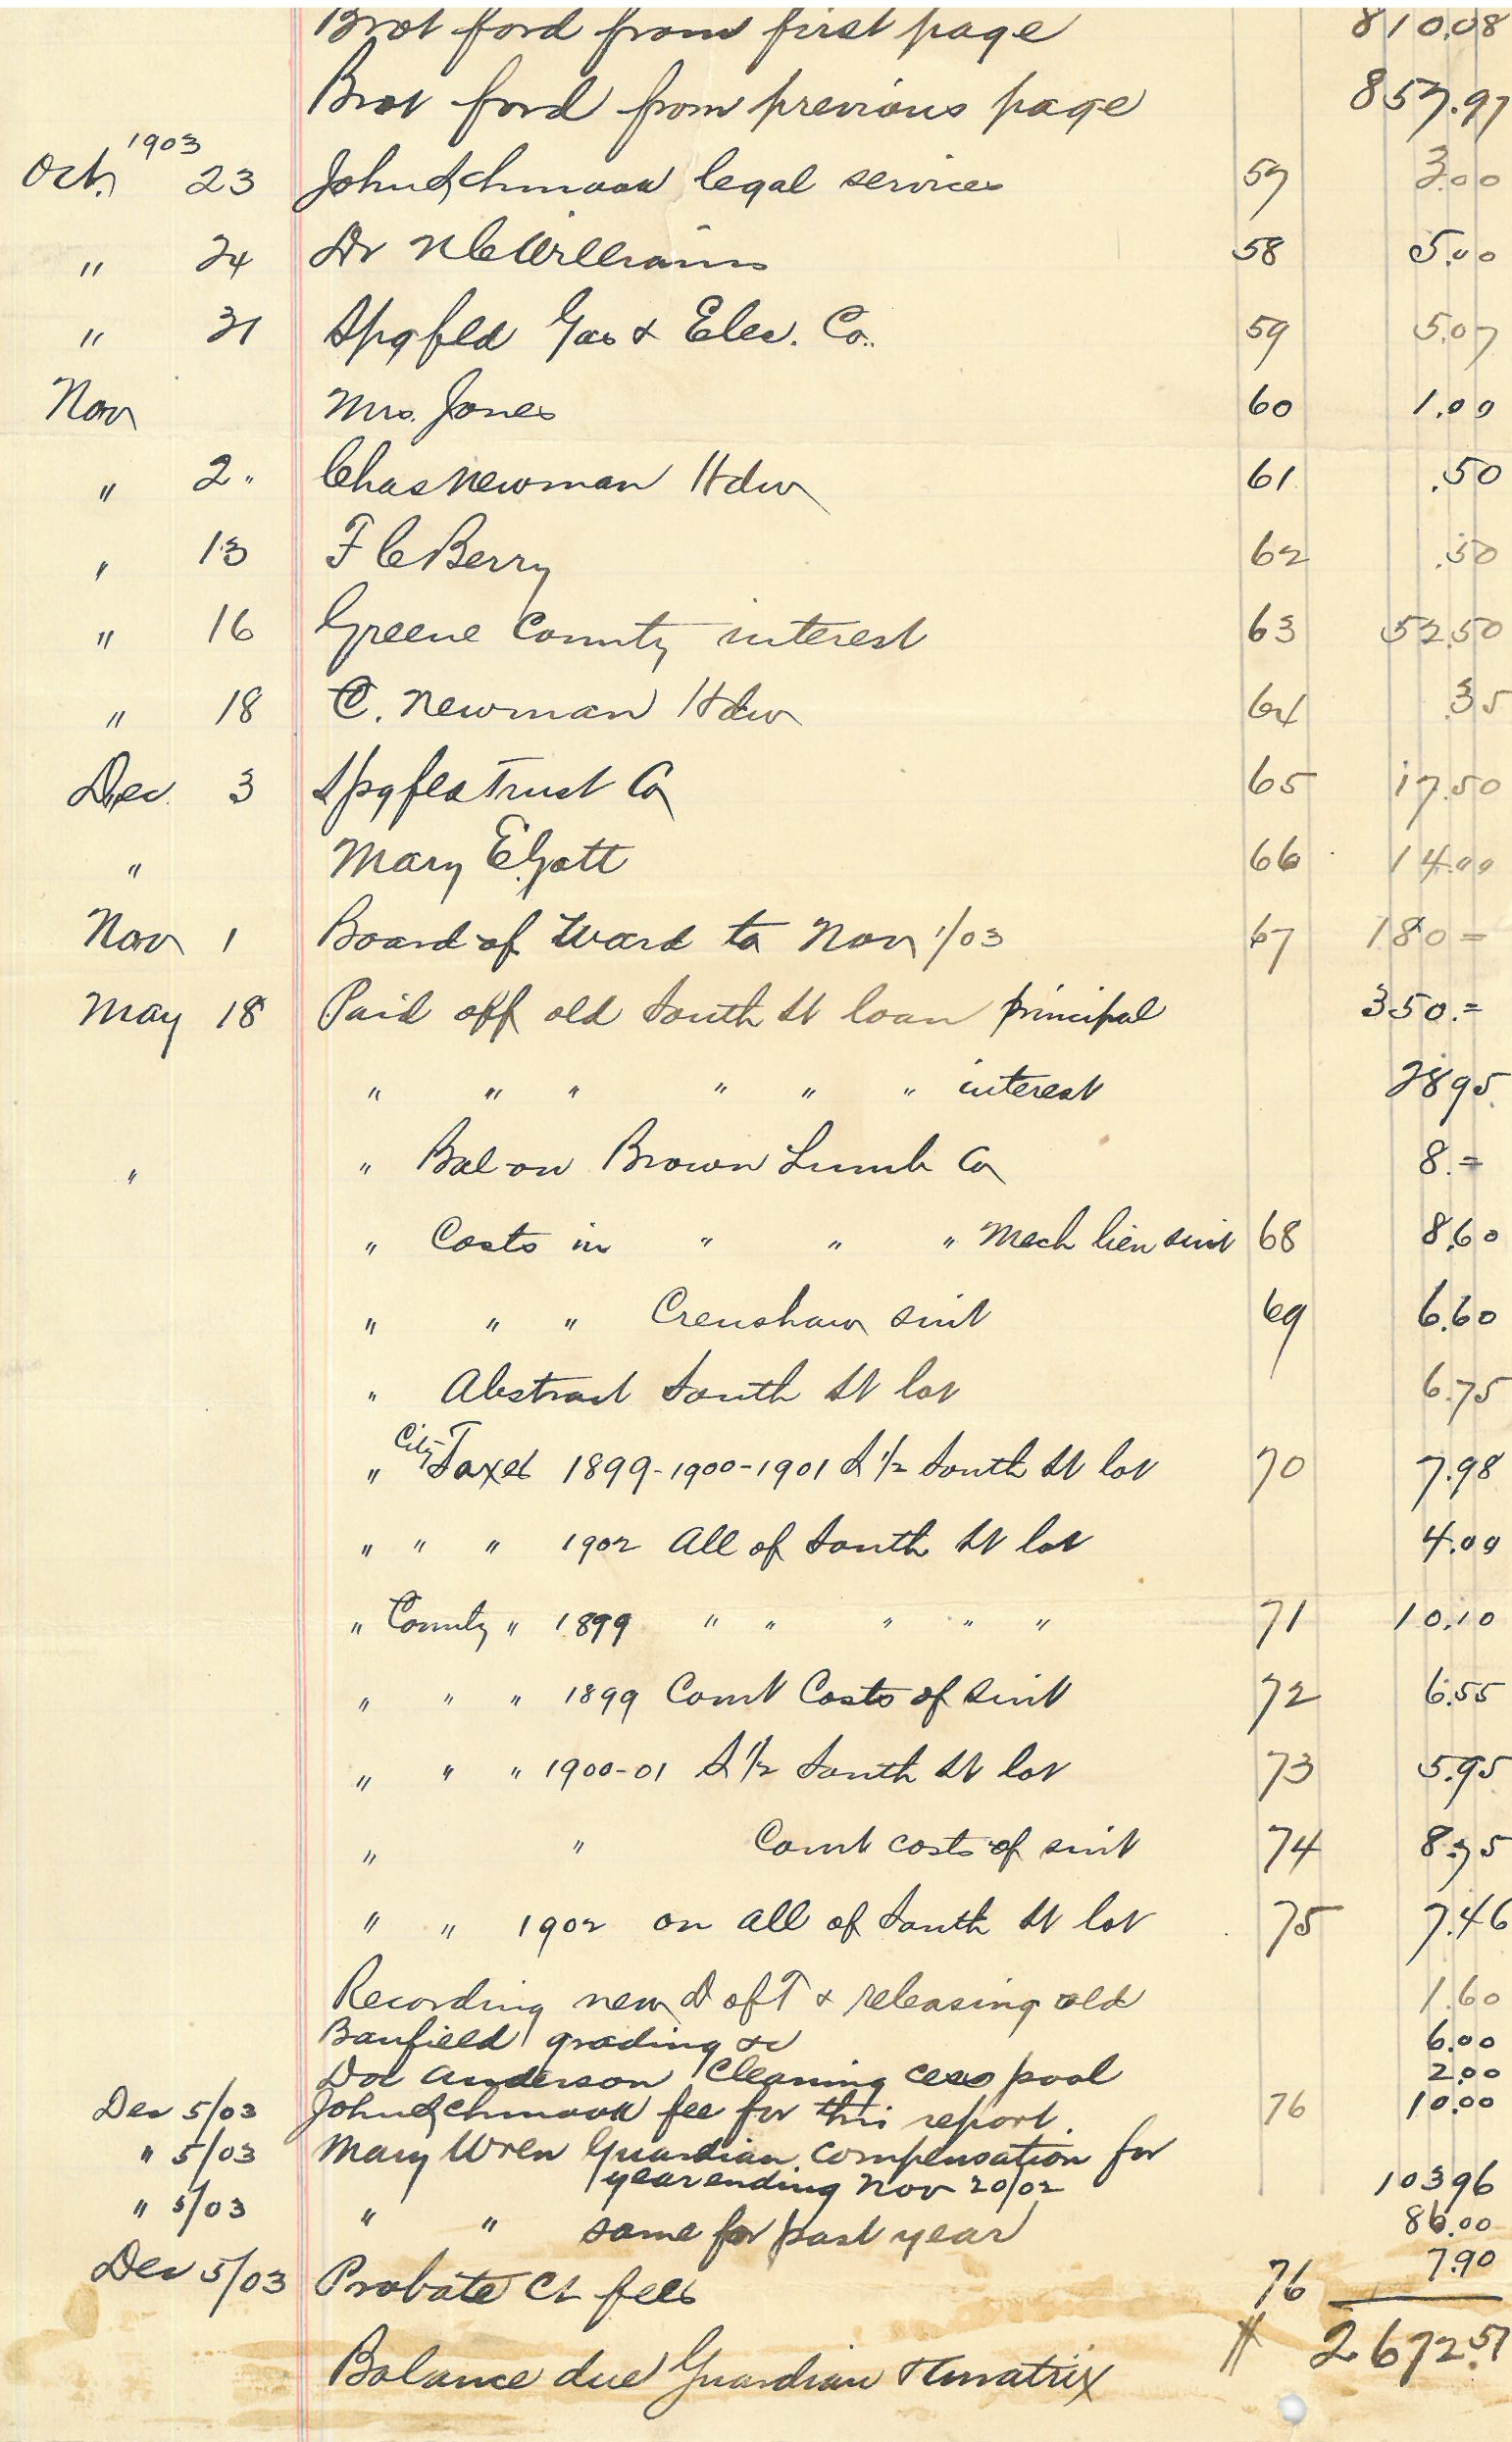 Brot ford from first page 810.08
Brot ford from previous page 857.97
1903
Oct. 23 John Schmook legal services 57 3.00
" 24 Dr N C Williams 58 5.00
" 31 Spgfld Gas & Elec. Co. 59 5.07
Nov Mrs. Jones 60 1.00
" 2" Chas Newman Hdw 61 .50
" 13 F C Berry 62 .50
" 16 Greene County interest 63 52.50
" 18 C. Newman Hdw 64 .35
Dec. 3 Spgfld Trust Co 65 17.50
" Mary E. Gott 66 14.00
Nov 1 Board of Ward to Nov 1/03 67 180=
May 18 Paid off old South St loan principal 350.=
" " " " " " interest 28 95
" " Bal on Brown Lumb Co 8.=
" Costs in " " " Mech lien suit 68 8.60
" " " Crenshaw suit 69 6.60
" Abstract South St lot 6.75
" City Taxes 1899-1900-1901 S 1/2 South St lot 70 7.98
" " " 1902 All of South St lot 4.00
" County " 1899 " " " " " 71 10.10
" " " 1899 Court Costs of suit 72 6.55
" " " 1900-01 S 1/2 South St lot 73 5.95
" " Court costs of suit 74 8.75
" " 1902 on all of South St lot 75 7.46
Recording new D of T & releasing old 1.60
Banfield grading &c 6.00
Doc Anderson Cleaning cess pool 2.00
Dec 5/03 John Schmook fee for this report. 76 10.00
" 5/03 Mary Wren Guardian compensation for
year ending Nov 20/02 103 96
" 5/03 " " same for past year 86.00
Dec 5/03 Probate Ct fees 76 7.90
$ 2672.57
Balance due Guardian & Curatrix